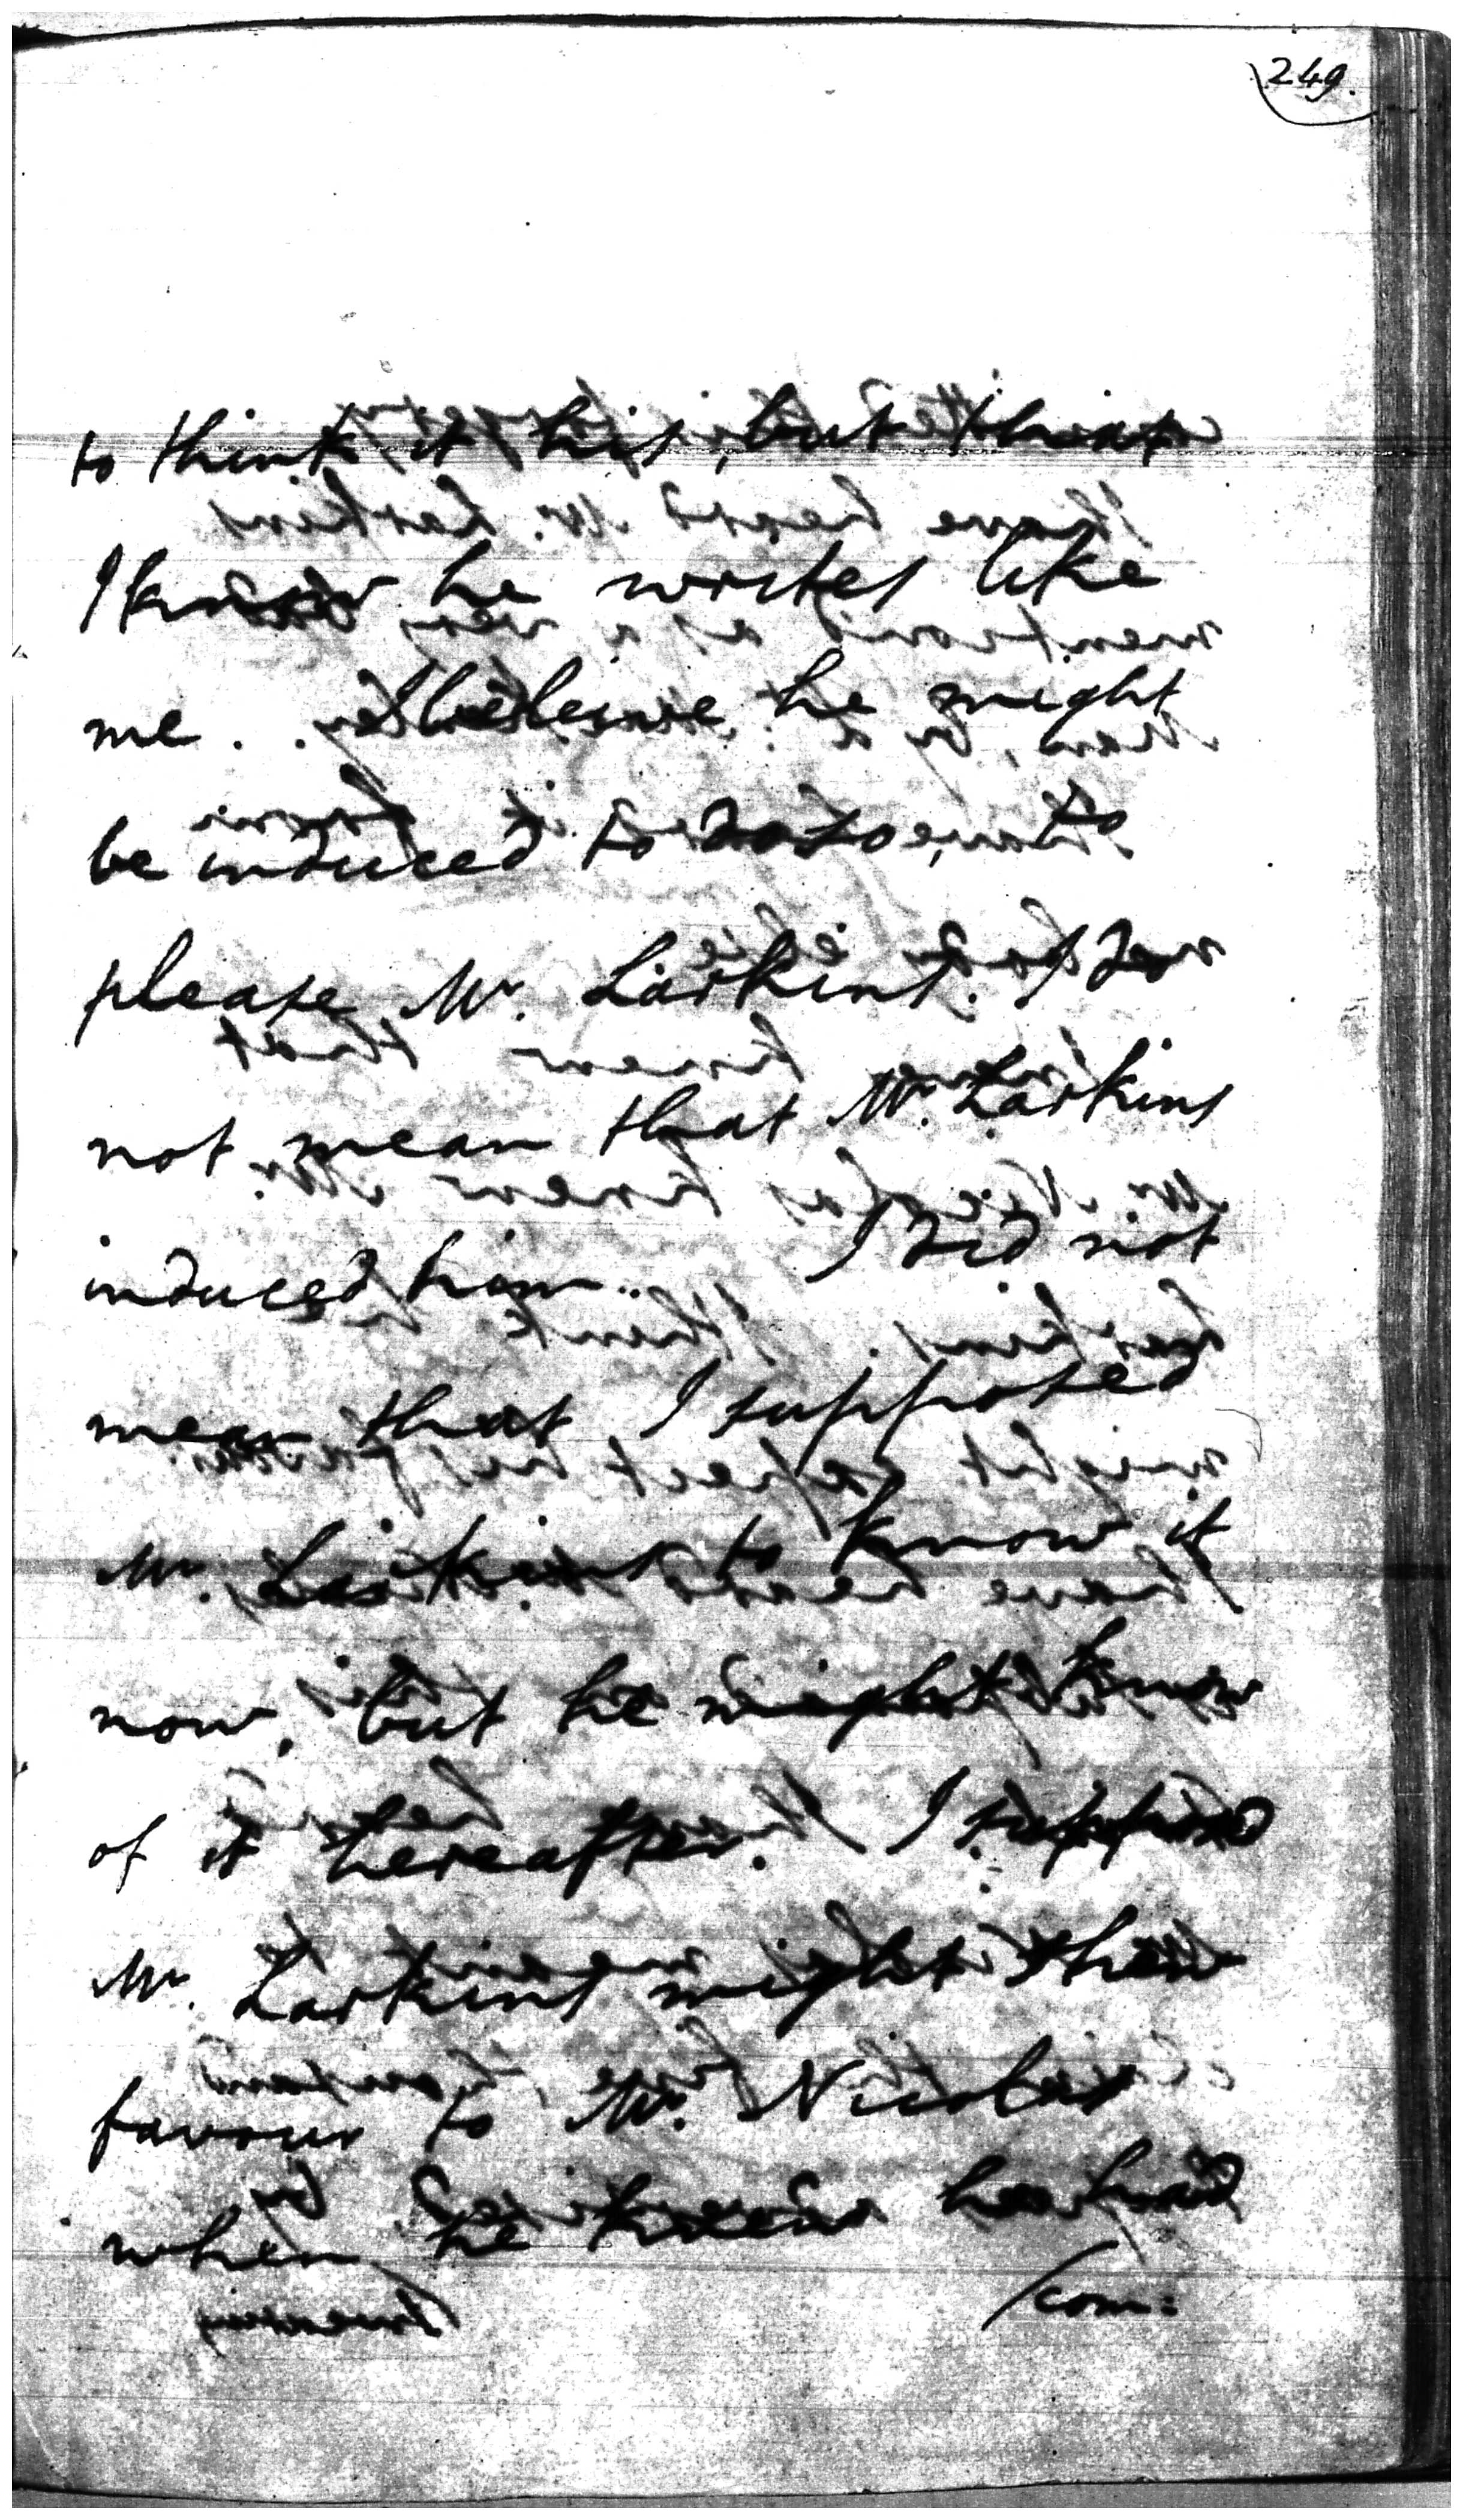 249.
to think it his, but that
I know he writes like
me. I believe he might
be induced to do so, to
please Mr. Larkins. I do
not mean that Mr. Larkins
induced him. I did not
mean that I supposed
Mr. Larkins to know it
now, but he might know
of it hereafter. I suppose
Mr. Larkins might shew
favour to Mr. Nicolas
when he knew he had
/com: